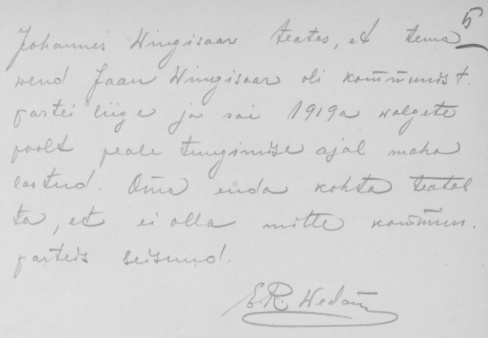 5
Johannes Wingisaar teatas, et tema
wend Jaan Wingisaar oli kommunist.
partei liige ja sai 1919a walgete
poolt peale tungimise ajal maha
lastud. Oma enda kohta teatab
ta, et ei olla mitte kommun.
parteis seisnud.
E.R. Wedom